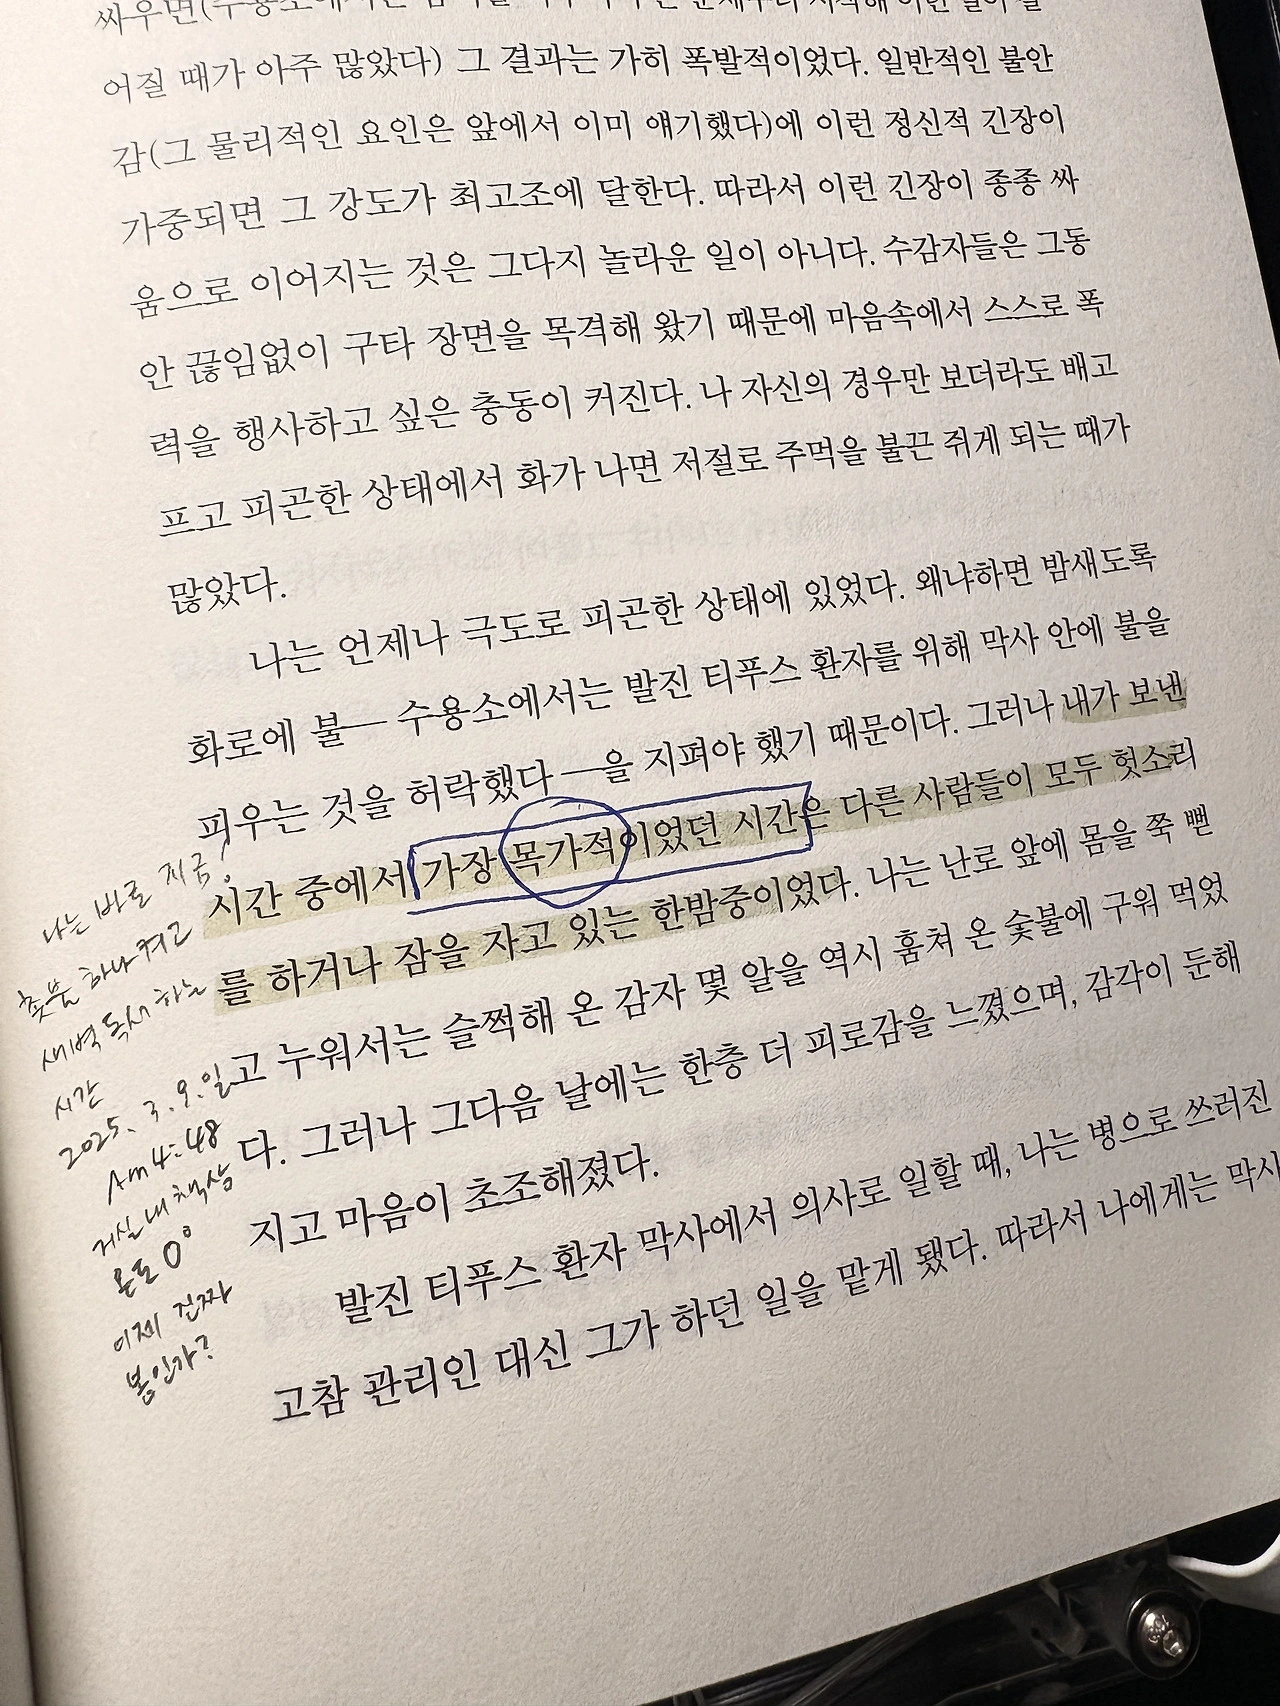 싸우면(수용소에서는
어질 때가 아주 많았다) 그 결과는 가히 폭발적이었다. 일반적인 불안
감(그 물리적인 요인은 앞에서 이미 얘기했다)에 이런 정신적 긴장이
가중되면 그 강도가 최고조에 달한다. 따라서 이런 긴장이 종종 싸
움으로 이어지는 것은 그다지 놀라운 일이 아니다. 수감자들은 그동
안 끊임없이 구타 장면을 목격해 왔기 때문에 마음속에서 스스로 폭
력을 행사하고 싶은 충동이 커진다. 나 자신의 경우만 보더라도 배고
프고 피곤한 상태에서 화가 나면 저절로 주먹을 불끈 쥐게 되는 때가
많았다.
나는 언제나 극도로 피곤한 상태에 있었다. 왜냐하면 밤새도록
화로에 불— 수용소에서는 발진 티푸스 환자를 위해 막사 안에 불을
피우는 것을 허락했다—을 지펴야 했기 때문이다. 그러나 내가 보낸
시간 중에서 가장 목가적이었던 시간은 다른 사람들이 모두 헛소리
를 하거나 잠을 자고 있는 한밤중이었다. 나는 난로 앞에 몸을 쭉 뻗
고 누워서는 슬쩍해 온 감자 몇 알을 역시 훔쳐 온 숯불에 구워 먹었
다. 그러나 그다음 날에는 한층 더 피로감을 느꼈으며, 감각이 둔해
지고 마음이 초조해졌다.
발진 티푸스 환자 막사에서 의사로 일할 때, 나는 병으로 쓰러진
고참 관리인 대신 그가 하던 일을 맡게 됐다. 따라서 나에게는 막사
나는 바로 지금!
촛불 하나 켜고
새벽 독서 하는
시간
2025. 3. 9. 일
Am 4:48
거실 내 책상
온도 0°
이제 진짜
봄인가?